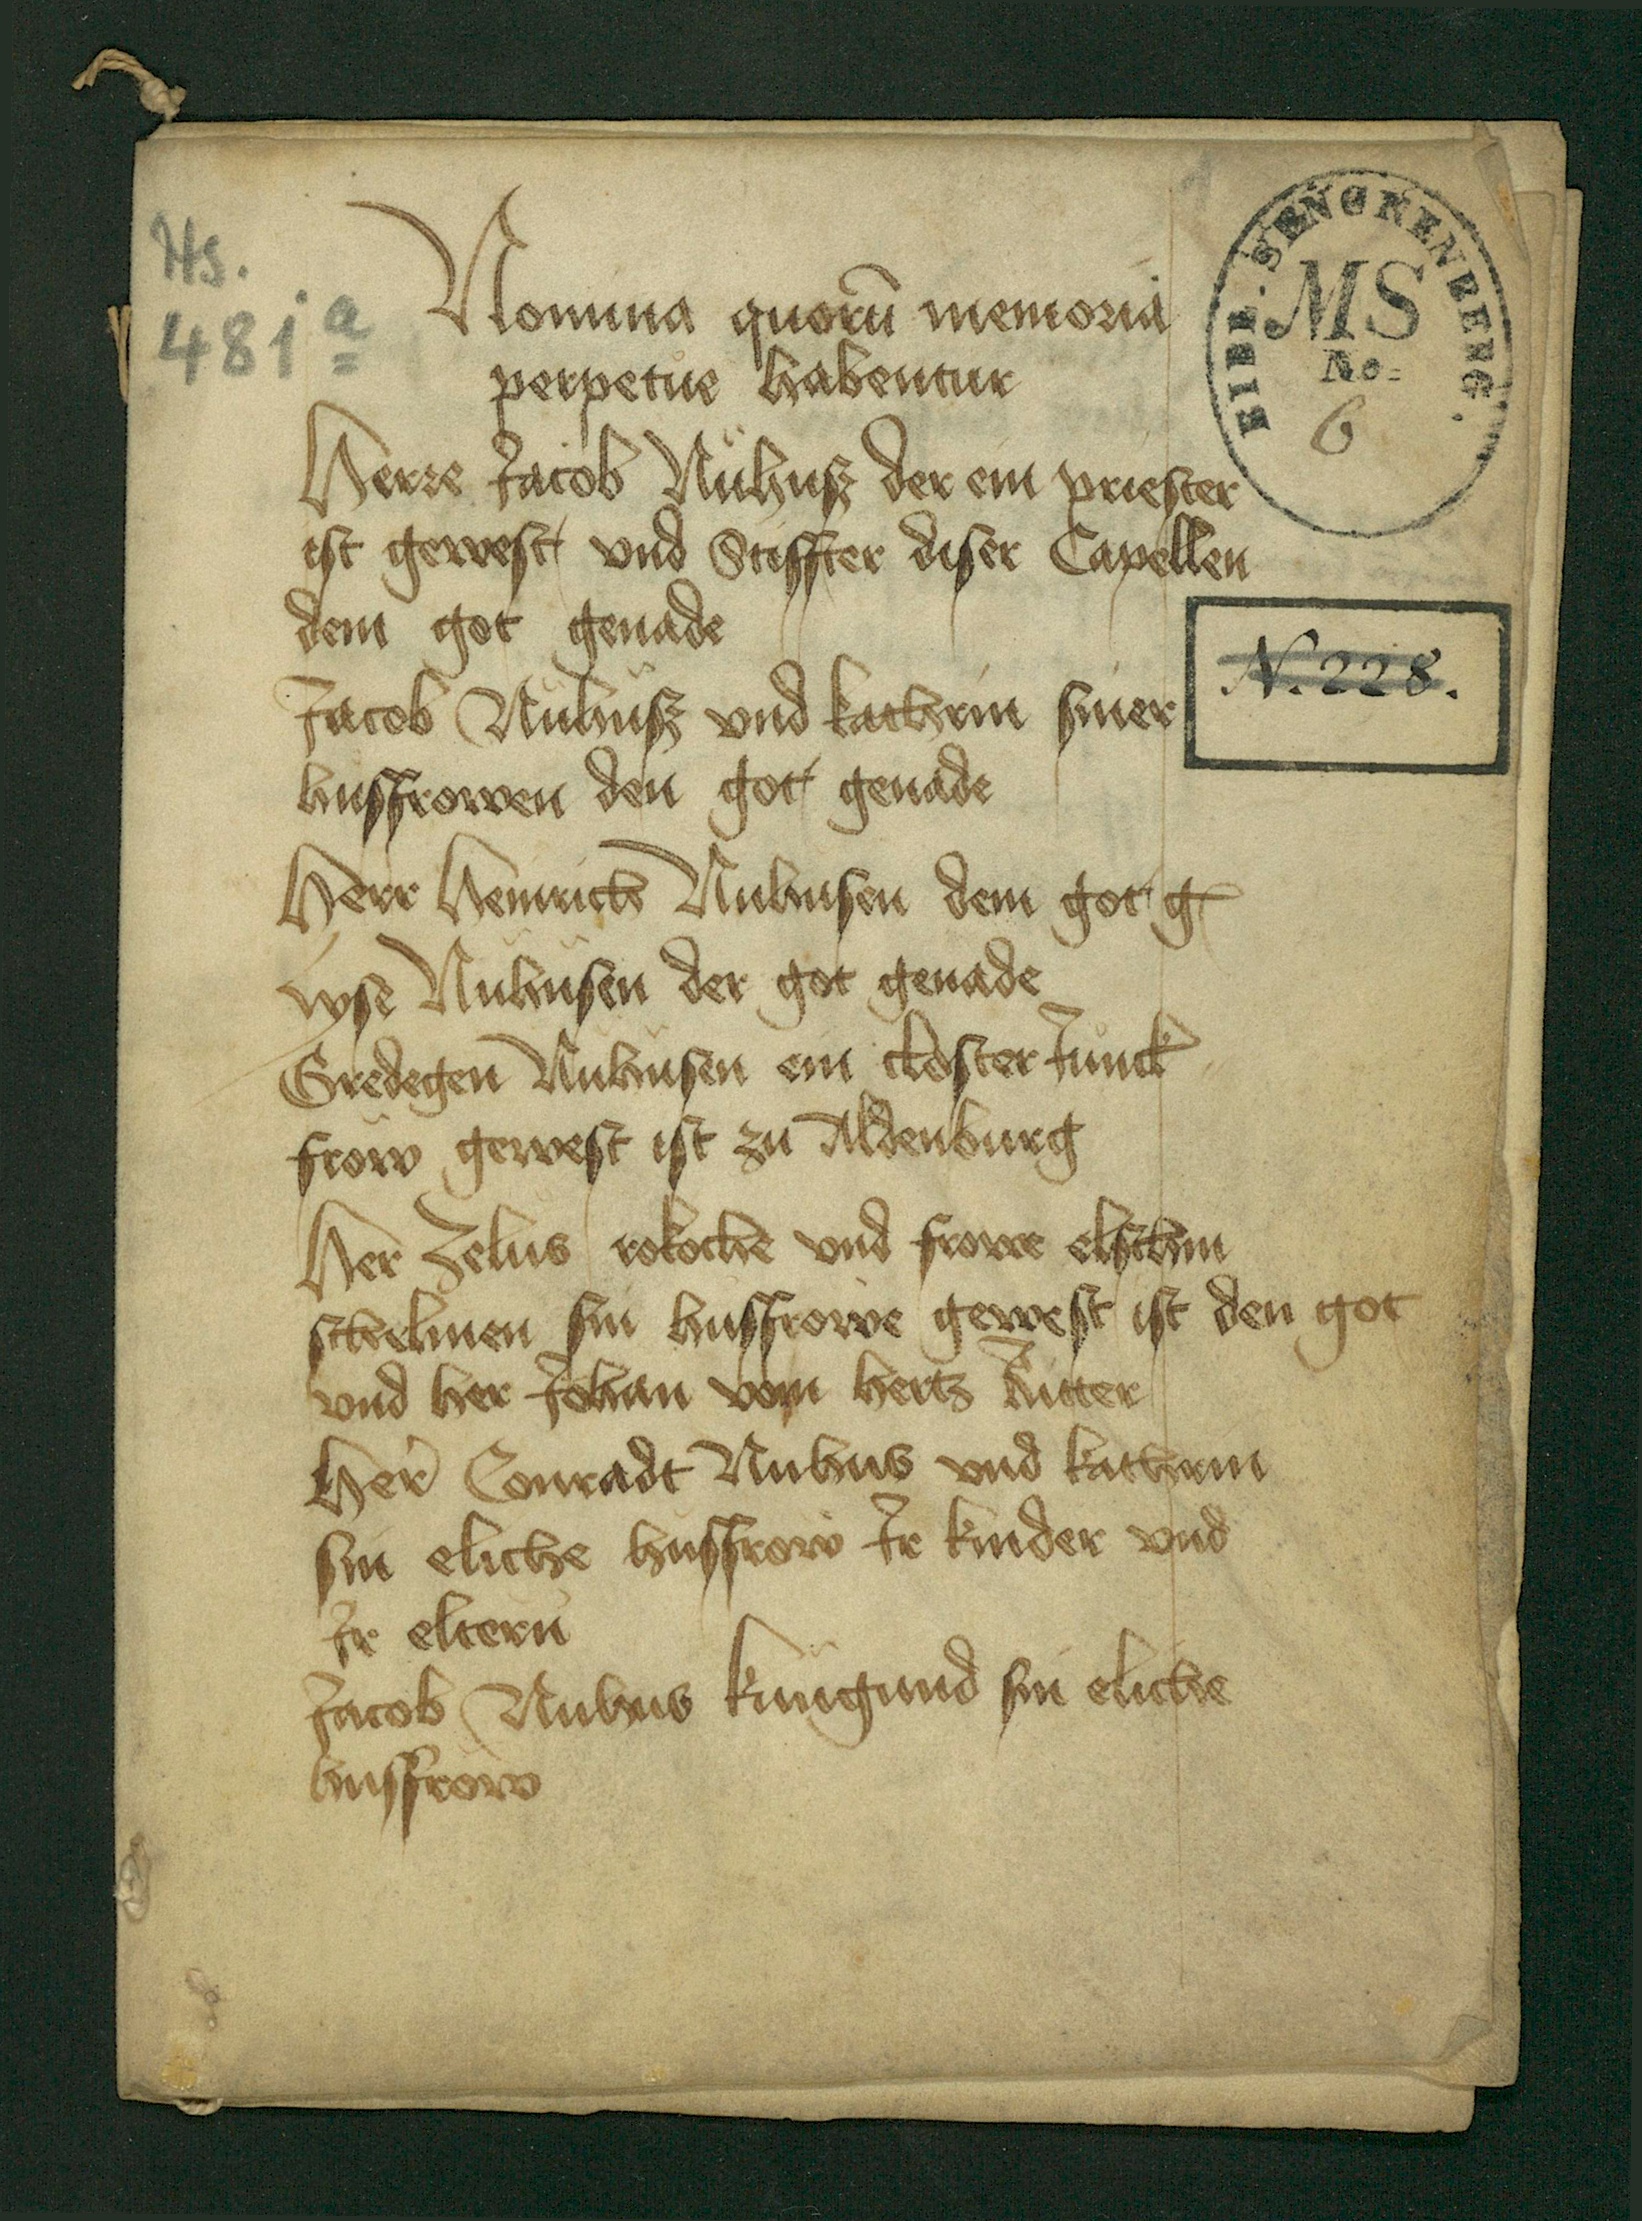 Hs.
481 a
BIBL. SENCKENBERG.
MS
No.
6
N. 228.
Nomina quorū memoria
perpetue habentur
Herre Jacob Nühusz der ein priester
ist gewest vnd Stiffter diser Capellen
dem got genade
Jacob Nühusz vnd kathrin siner
hussfrowen den got genade
Herr Heinrich Nuhusen dem got g
wyse Nühusen der got genade
Gredegen Nuhusen ein closter Junck
frow gewest ist zu Aldenburg
Her Zelus rokoche vnd frowe
schelmen sin hussfrowe gewest ist den got
vnd her Johan vom hertz Ritter
Her Conradt Nuhus vnd kathrin
sin eliche hussfrow Ir kinder vnd
Ir eltern
Jacob Nuhus kungund sin eliche
hussfrow